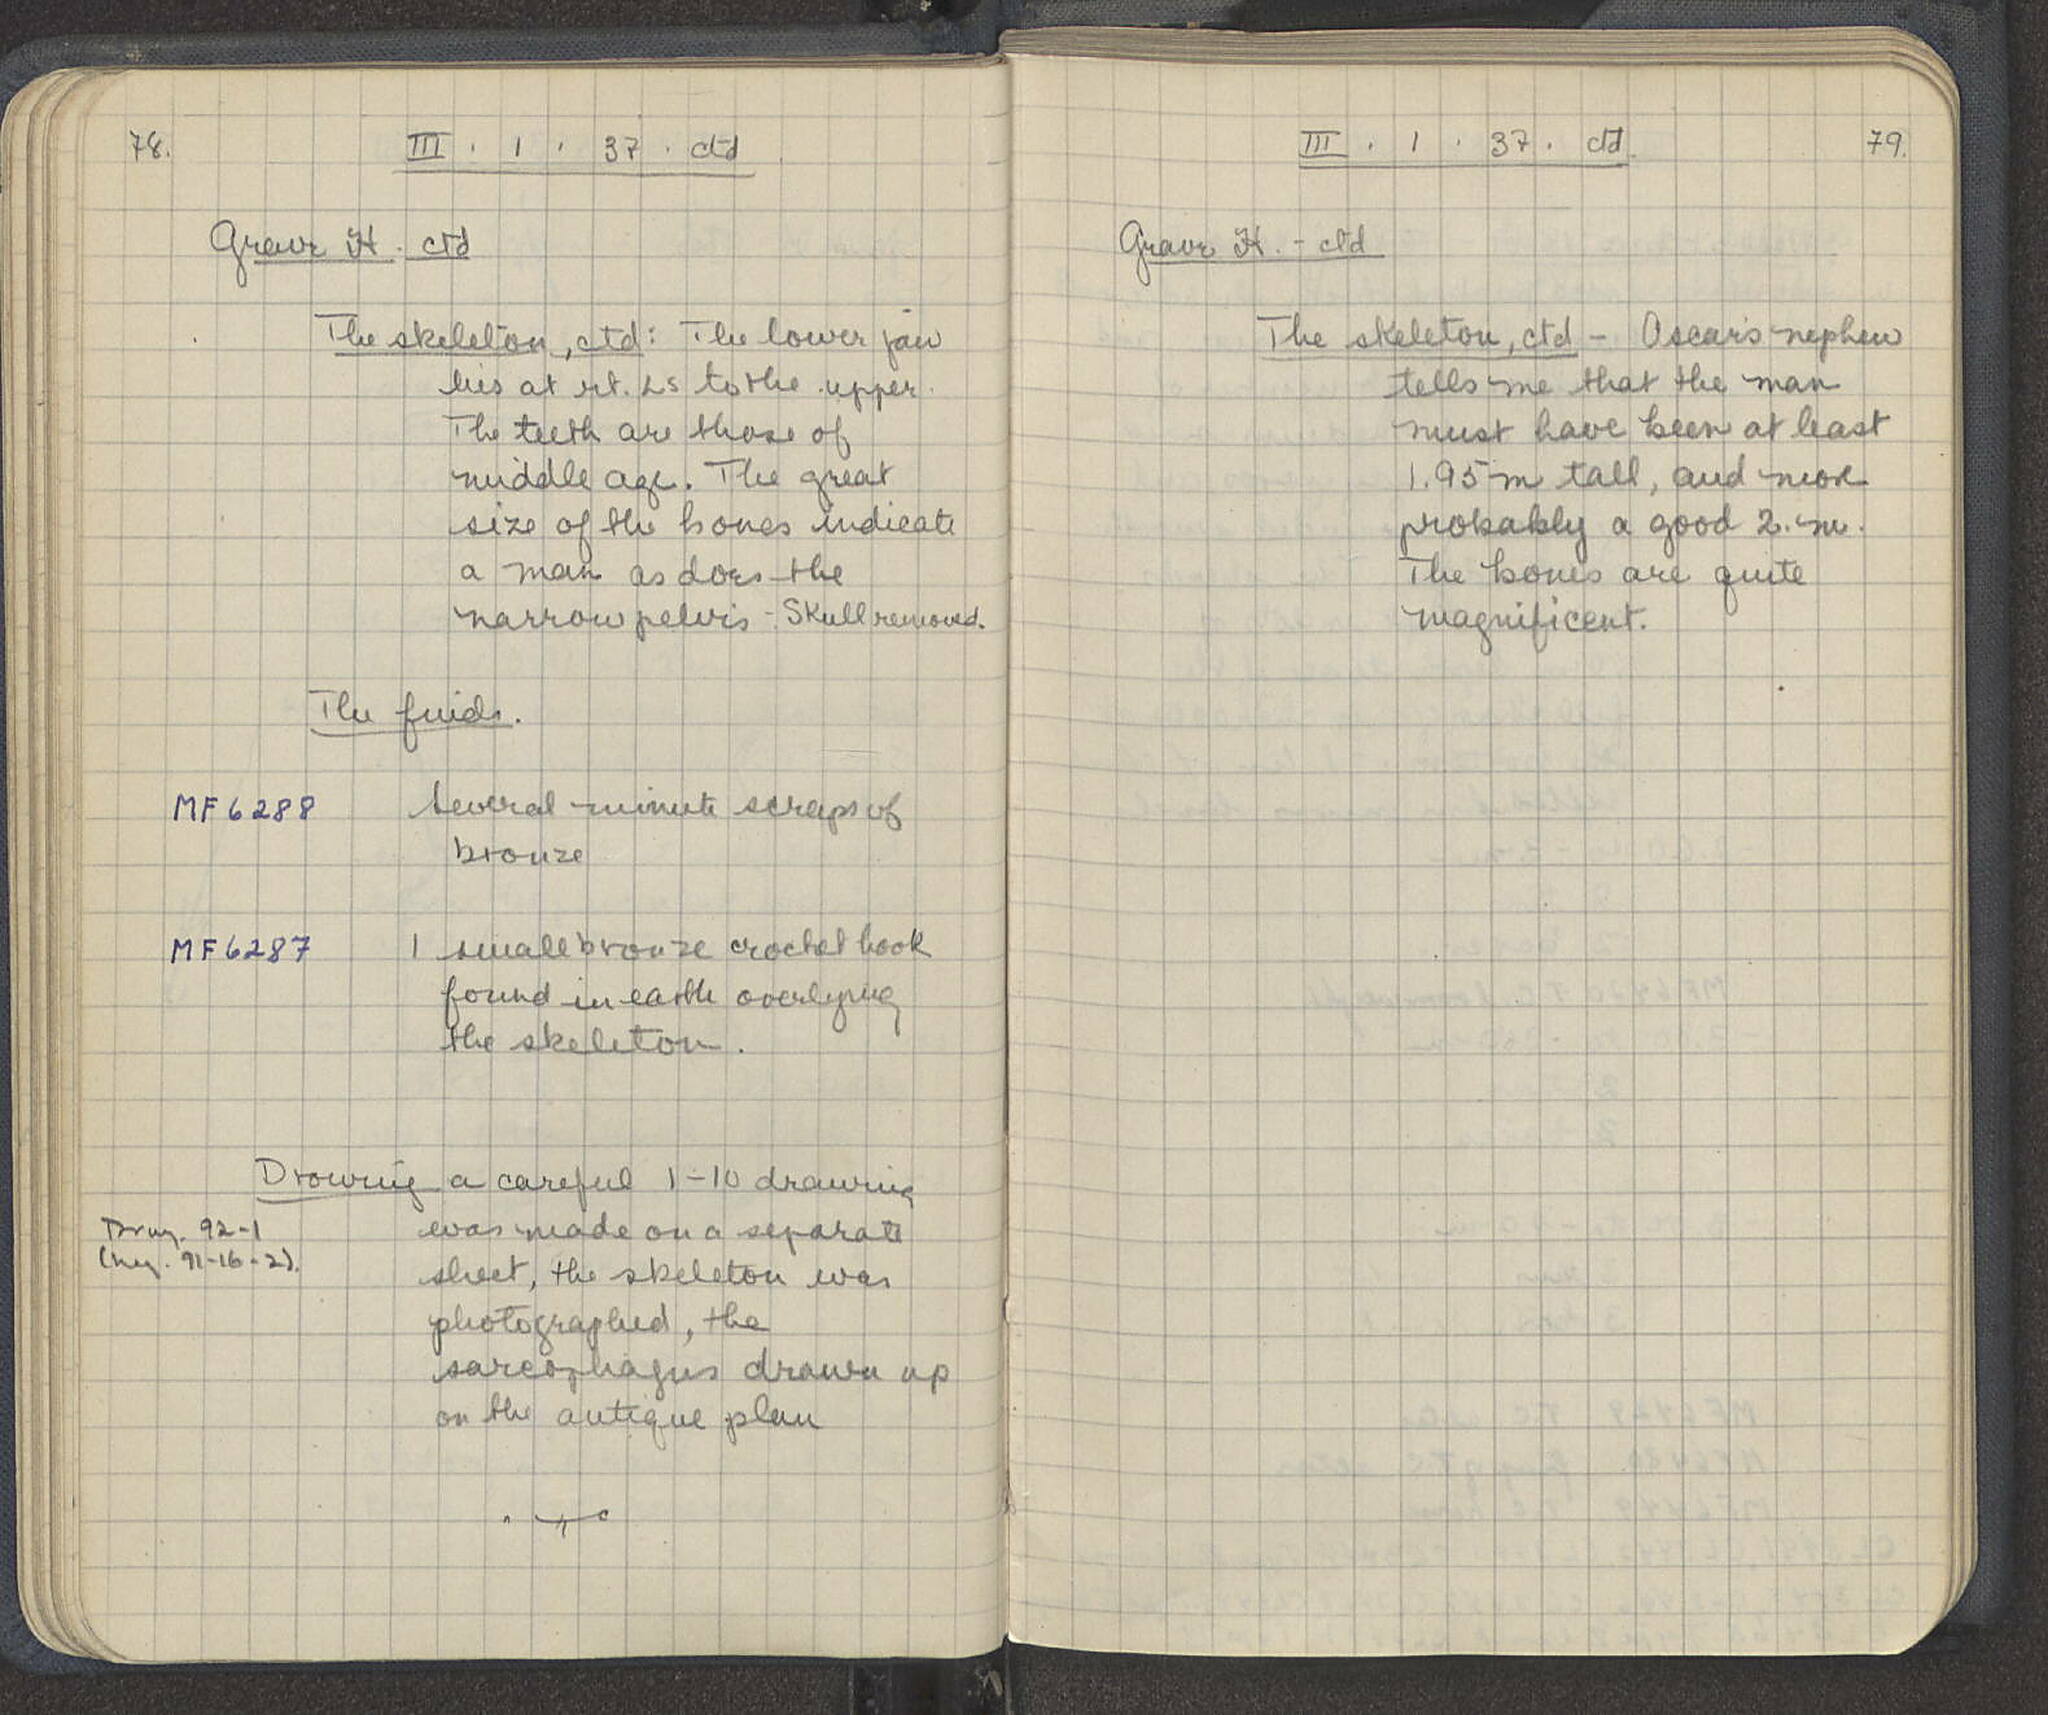 78.
III . 1 . 37 . ctd
Grave H. ctd
The skeleton, ctd: The lower jaw
lies at rt. ∠s to the upper.
The teeth are those of
middle age. The great
size of the bones indicate
a man as does the
narrow pelvis - Skull removed.
The finds.
MF 6288 Several minute scraps of
bronze
MF 6287 1 small bronze crochet hook
found in earth overlying
the skeleton.
Drawing a careful 1-10 drawing
Drwg. 92-1 was made on a separate
(neg. 91-16-2). sheet, the skeleton was
photographed, the
sarcophagus drawn up
on the antique plan
79.
III . 1 . 37 . ctd.
Grave H. - ctd
The skeleton, ctd - Oscar's nephew
tells me that the man
must have been at least
1.95 m tall, and more
probably a good 2. m.
The bones are quite
magnificent.